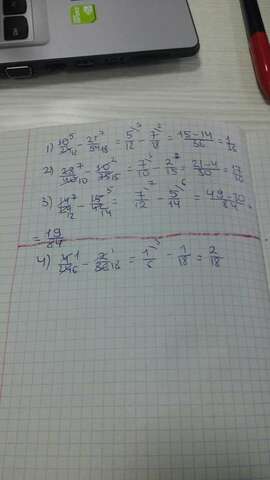 1) 10⁵/24₁₂ - 21⁷/54₁₈ = 5/12 - 7/18 = 15-14/36 = 1/36
2) 28⁷/40₁₀ - 10²/75₁₅ = 7/10 - 2/15 = 21-4/30 = 17/30
3) 14⁷/24₁₂ - 15⁵/42₁₄ = 7/12 - 5/14 = 49-30/84 =
= 19/84
4) 4¹/24₆ - 2¹/36₁₈ = 1/6 - 1/18 = 2/18